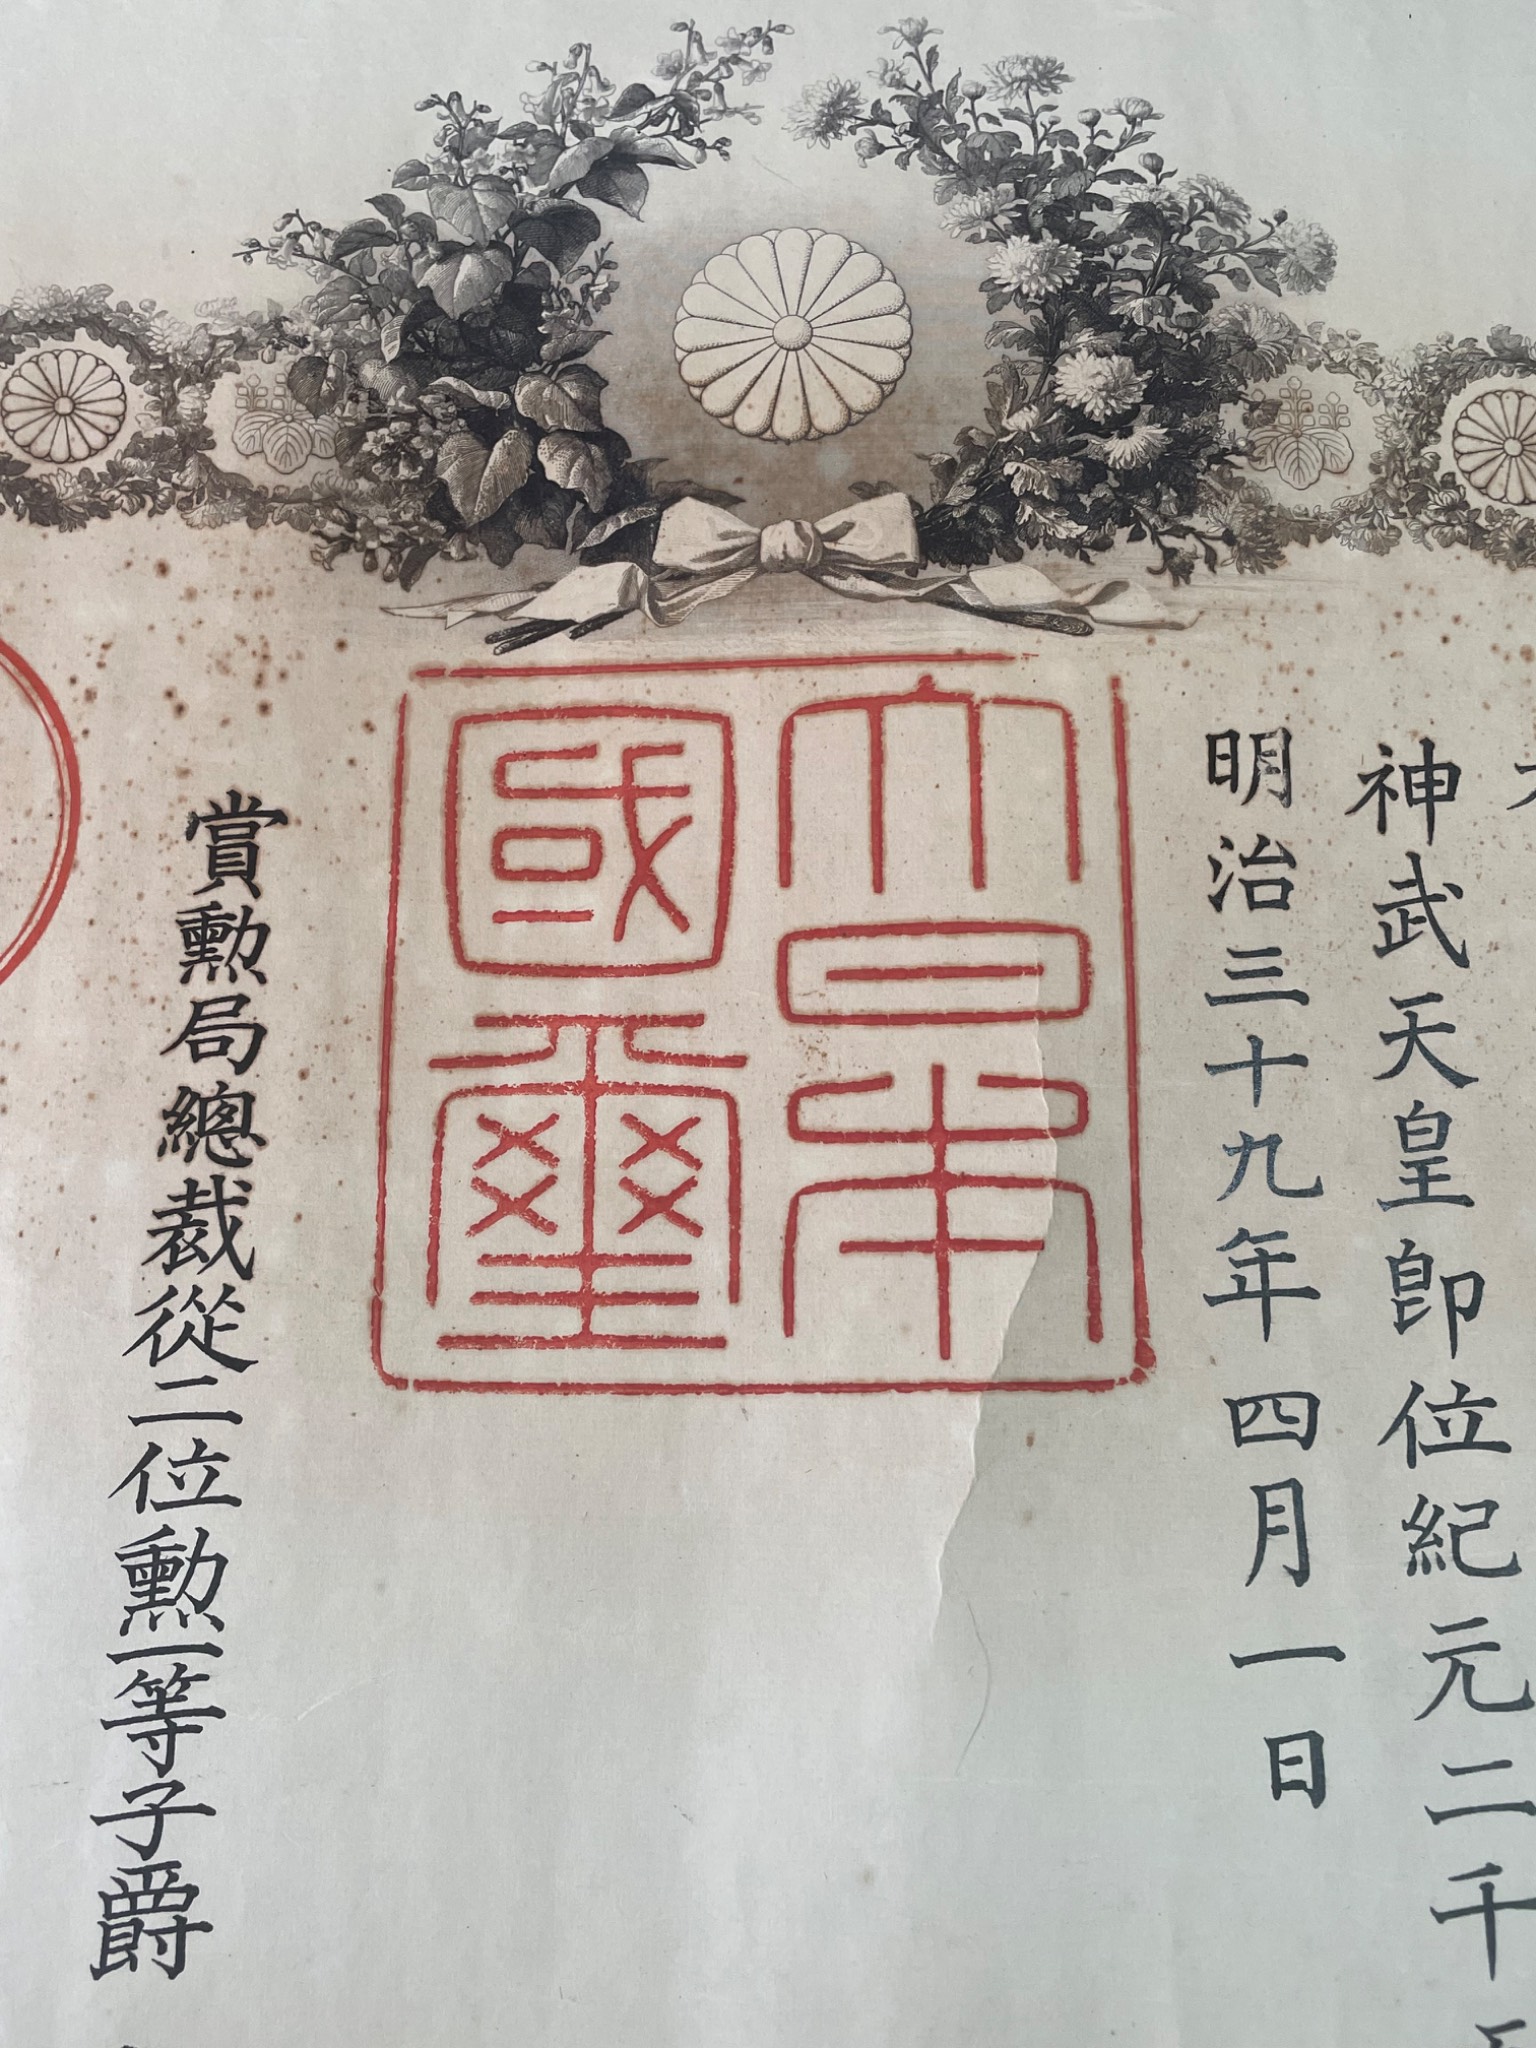 神武天皇即位紀元二千
明治三十九年四月一日
大日本國璽
賞勲局總裁從二位勲一等子爵